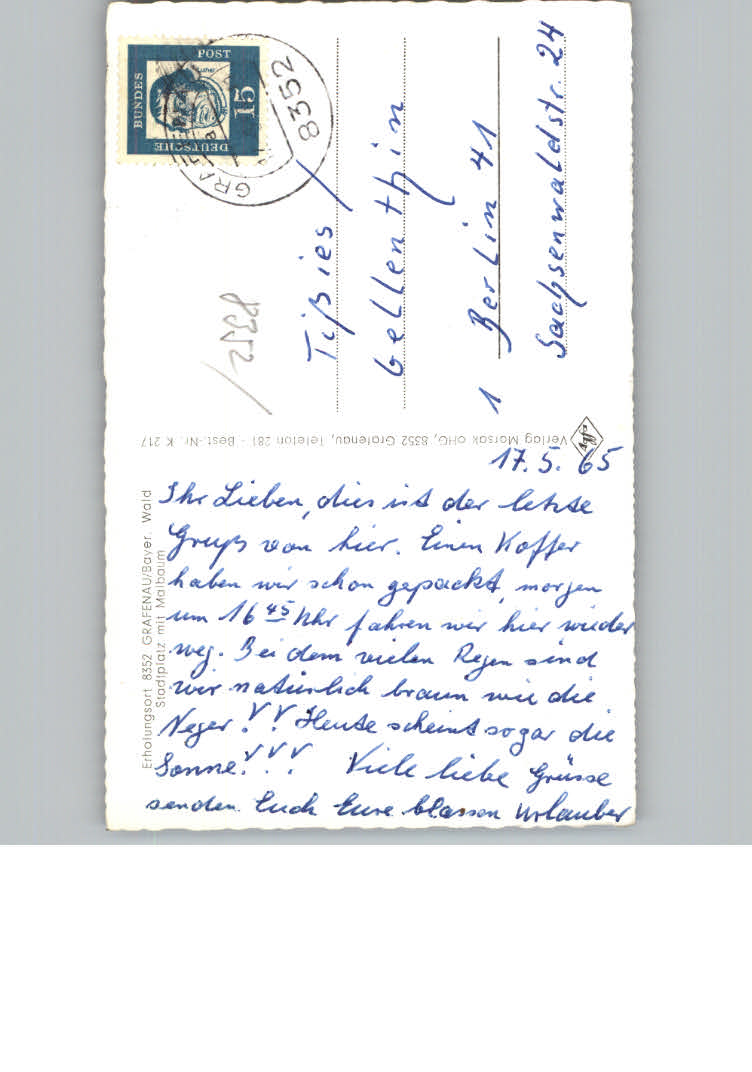 17. 5. 65
Ihr Lieben, dies ist der letzte
Gruß von hier. Einen Koffer
haben wir schon gepackt, morgen
um 16 45 Uhr fahren wir hier wieder
weg. Bei dem vielen Regen sind
wir natürlich braun wie die
Neger!! Heute scheint sogar die
Sonne!!! Viele liebe Grüsse
senden Euch Eure blassen Urlauber
Erholungsort 8352 GRAFENAU/Bayer. Wald
Stadtplatz mit Maibaum
Verlag Morsak oHG, 8352 Grafenau, Telefon 281 - Best.-Nr. K 217
Agfa
8352
Tißies /
Gellenthin
1 Berlin 41
Sachsenwaldstr. 24
DEUTSCHE
BUNDES
POST
15
8352
GRA